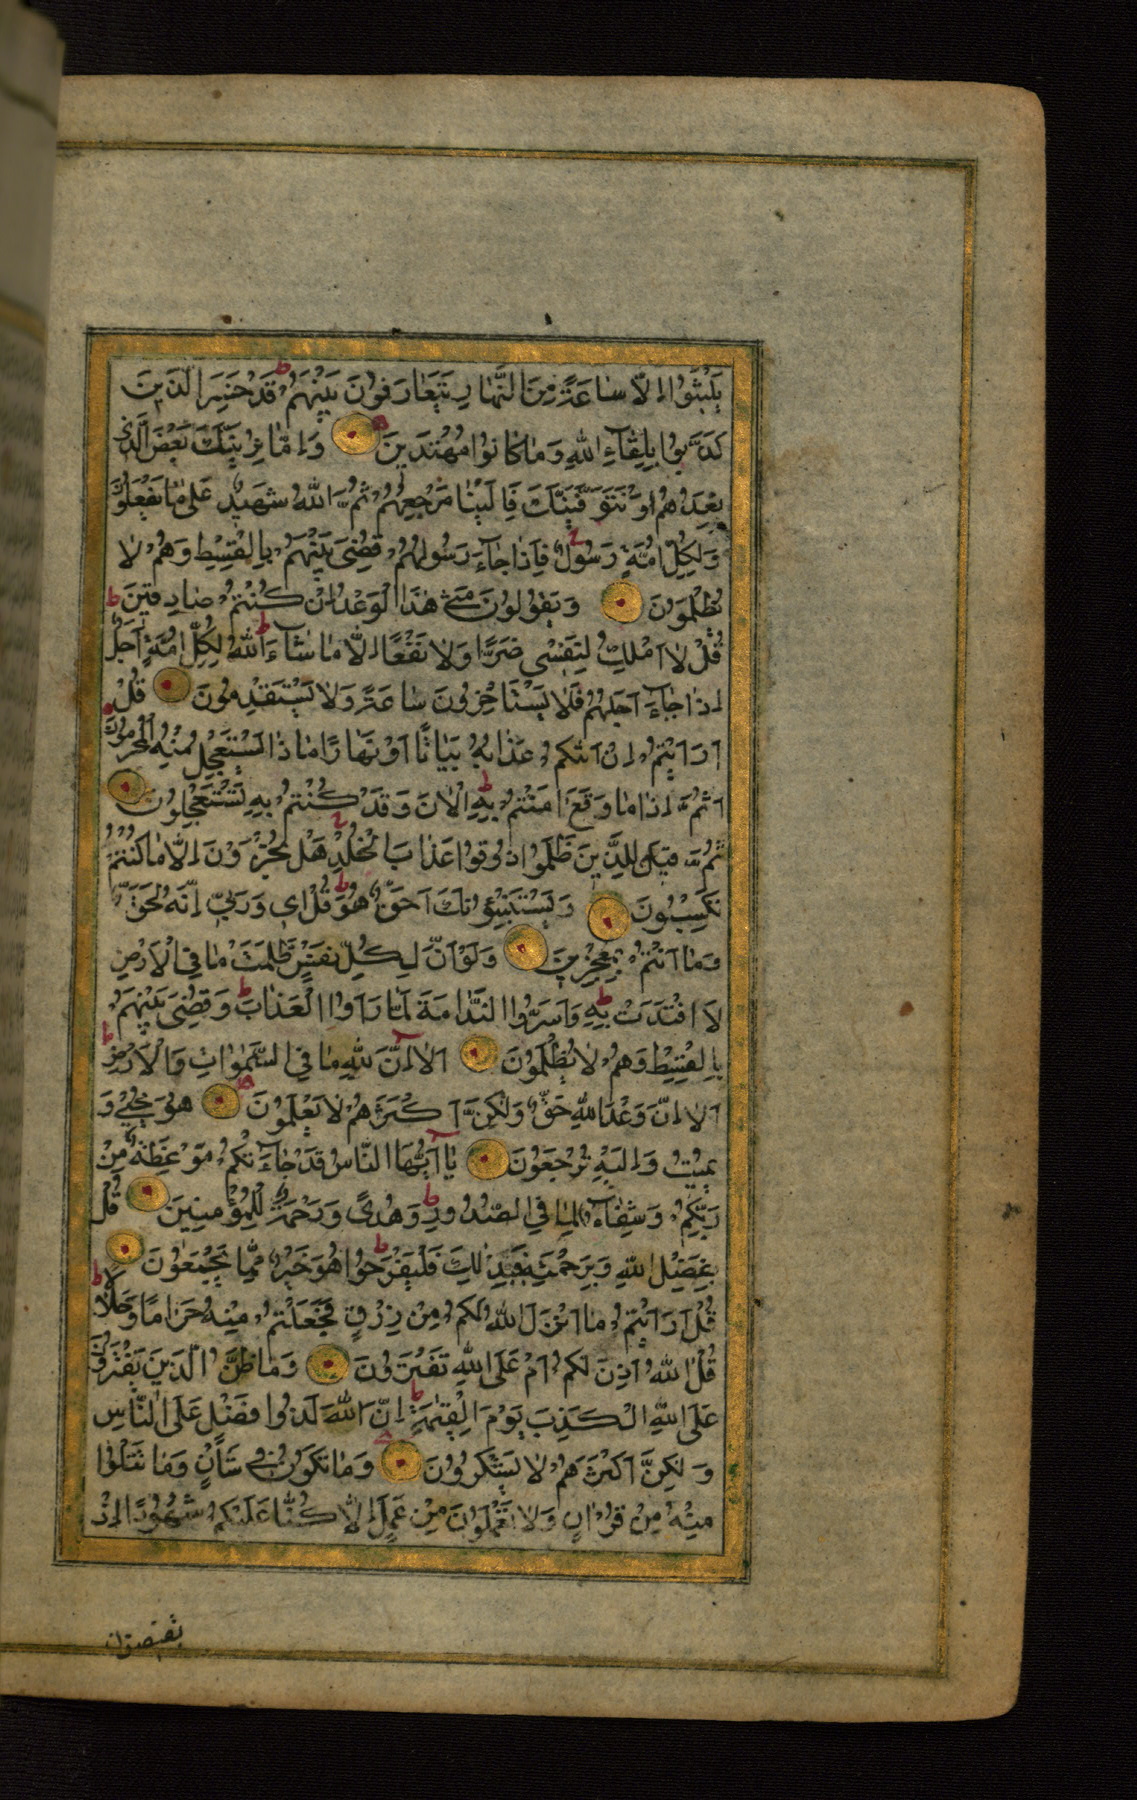 يَلْبَثُوا اِلَّا سَاعَةً مِنَ النَّهَارِ يَتَعَارَفُونَ بَيْنَهُمْ ط قَدْ خَسِرَ الَّذِينَ
كَذَّبُوا بِلِقَآءِ اللّٰهِ وَمَا كَانُوا مُهْتَدِينَ وَاِمَّا نُرِيَنَّكَ بَعْضَ الَّذِى
نَعِدُهُمْ اَوْ نَتَوَفَّيَنَّكَ فَاِلَيْنَا مَرْجِعُهُمْ ثُمَّ اللّٰهُ شَهِيدٌ عَلٰى مَا يَفْعَلُونَ
وَلِكُلِّ اُمَّةٍ رَسُولٌ فَاِذَا جَآءَ رَسُولُهُمْ قُضِىَ بَيْنَهُمْ بِالْقِسْطِ وَهُمْ لَا
يُظْلَمُونَ وَيَقُولُونَ مَتٰى هٰذَا الْوَعْدُ اِنْ كُنْتُمْ صَادِقِينَ ط
قُلْ لَا اَمْلِكُ لِنَفْسِى ضَرًّا وَلَا نَفْعًا اِلَّا مَا شَآءَ اللّٰهُ ط لِكُلِّ اُمَّةٍ اَجَلٌ
اِذَا جَآءَ اَجَلُهُمْ فَلَا يَسْتَاْخِرُونَ سَاعَةً وَلَا يَسْتَقْدِمُونَ قُلْ
اَرَاَيْتُمْ اِنْ اَتٰىكُمْ عَذَابُهُ بَيَاتًا اَوْ نَهَارًا مَاذَا يَسْتَعْجِلُ مِنْهُ الْمُجْرِمُونَ
اَثُمَّ اِذَا مَا وَقَعَ اٰمَنْتُمْ بِهِ ط اٰلْاٰنَ وَقَدْ كُنْتُمْ بِهِ تَسْتَعْجِلُونَ
ثُمَّ قِيلَ لِلَّذِينَ ظَلَمُوا ذُوقُوا عَذَابَ الْخُلْدِ هَلْ تُجْزَوْنَ اِلَّا مَا كُنْتُمْ
تَكْسِبُونَ وَيَسْتَنْبِئُونَكَ اَحَقٌّ هُوَ ط قُلْ اِى وَرَبِّى اِنَّهُ لَحَقٌّ
وَمَا اَنْتُمْ بِمُعْجِزِينَ وَلَوْ اَنَّ لِكُلِّ نَفْسٍ ظَلَمَتْ مَا فِى الْاَرْضِ
لَافْتَدَتْ بِهِ ط وَاَسَرُّوا النَّدَامَةَ لَمَّا رَاَوُا الْعَذَابَ ط وَقُضِىَ بَيْنَهُمْ
بِالْقِسْطِ وَهُمْ لَا يُظْلَمُونَ اَلَا اِنَّ لِلّٰهِ مَا فِى السَّمٰوَاتِ وَالْاَرْضِ ط
اَلَا اِنَّ وَعْدَ اللّٰهِ حَقٌّ وَلٰكِنَّ اَكْثَرَهُمْ لَا يَعْلَمُونَ هُوَ يُحْيٖ وَ
يُمِيتُ وَاِلَيْهِ تُرْجَعُونَ يَا اَيُّهَا النَّاسُ قَدْ جَآءَتْكُمْ مَوْعِظَةٌ مِنْ
رَبِّكُمْ وَشِفَآءٌ لِمَا فِى الصُّدُورِ ط وَهُدًى وَرَحْمَةٌ لِلْمُؤْمِنِينَ قُلْ
بِفَضْلِ اللّٰهِ وَبِرَحْمَتِهِ فَبِذٰلِكَ فَلْيَفْرَحُوا ط هُوَ خَيْرٌ مِمَّا يَجْمَعُونَ
قُلْ اَرَاَيْتُمْ مَا اَنْزَلَ اللّٰهُ لَكُمْ مِنْ رِزْقٍ فَجَعَلْتُمْ مِنْهُ حَرَامًا وَحَلَالًا ط
قُلْ اٰللّٰهُ اَذِنَ لَكُمْ اَمْ عَلَى اللّٰهِ تَفْتَرُونَ وَمَا ظَنُّ الَّذِينَ يَفْتَرُونَ
عَلَى اللّٰهِ الْكَذِبَ يَوْمَ الْقِيٰمَةِ ط اِنَّ اللّٰهَ لَذُوا فَضْلٍ عَلَى النَّاسِ
وَلٰكِنَّ اَكْثَرَهُمْ لَا يَشْكُرُونَ وَمَا تَكُونُ فِى شَاْنٍ وَمَا تَتْلُوا
مِنْهُ مِنْ قُرْاٰنٍ وَلَا تَعْمَلُونَ مِنْ عَمَلٍ اِلَّا كُنَّا عَلَيْكُمْ شُهُودًا اِذْ